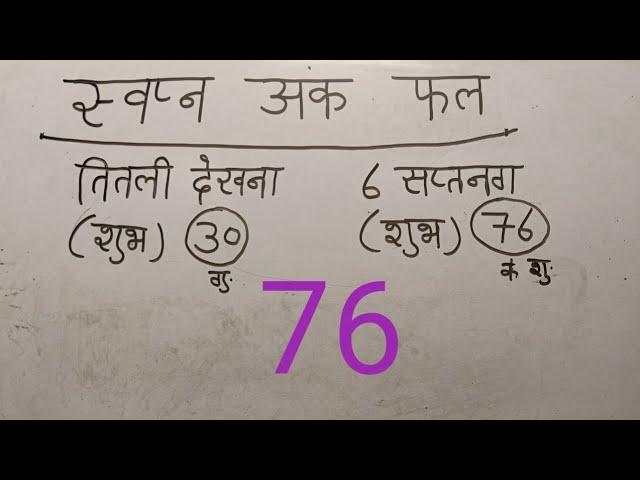 स्वप्न अक फल
तितली देखना
(शुभ) 30
गु.
6 सप्तनग
(शुभ) 76
के शु.
76